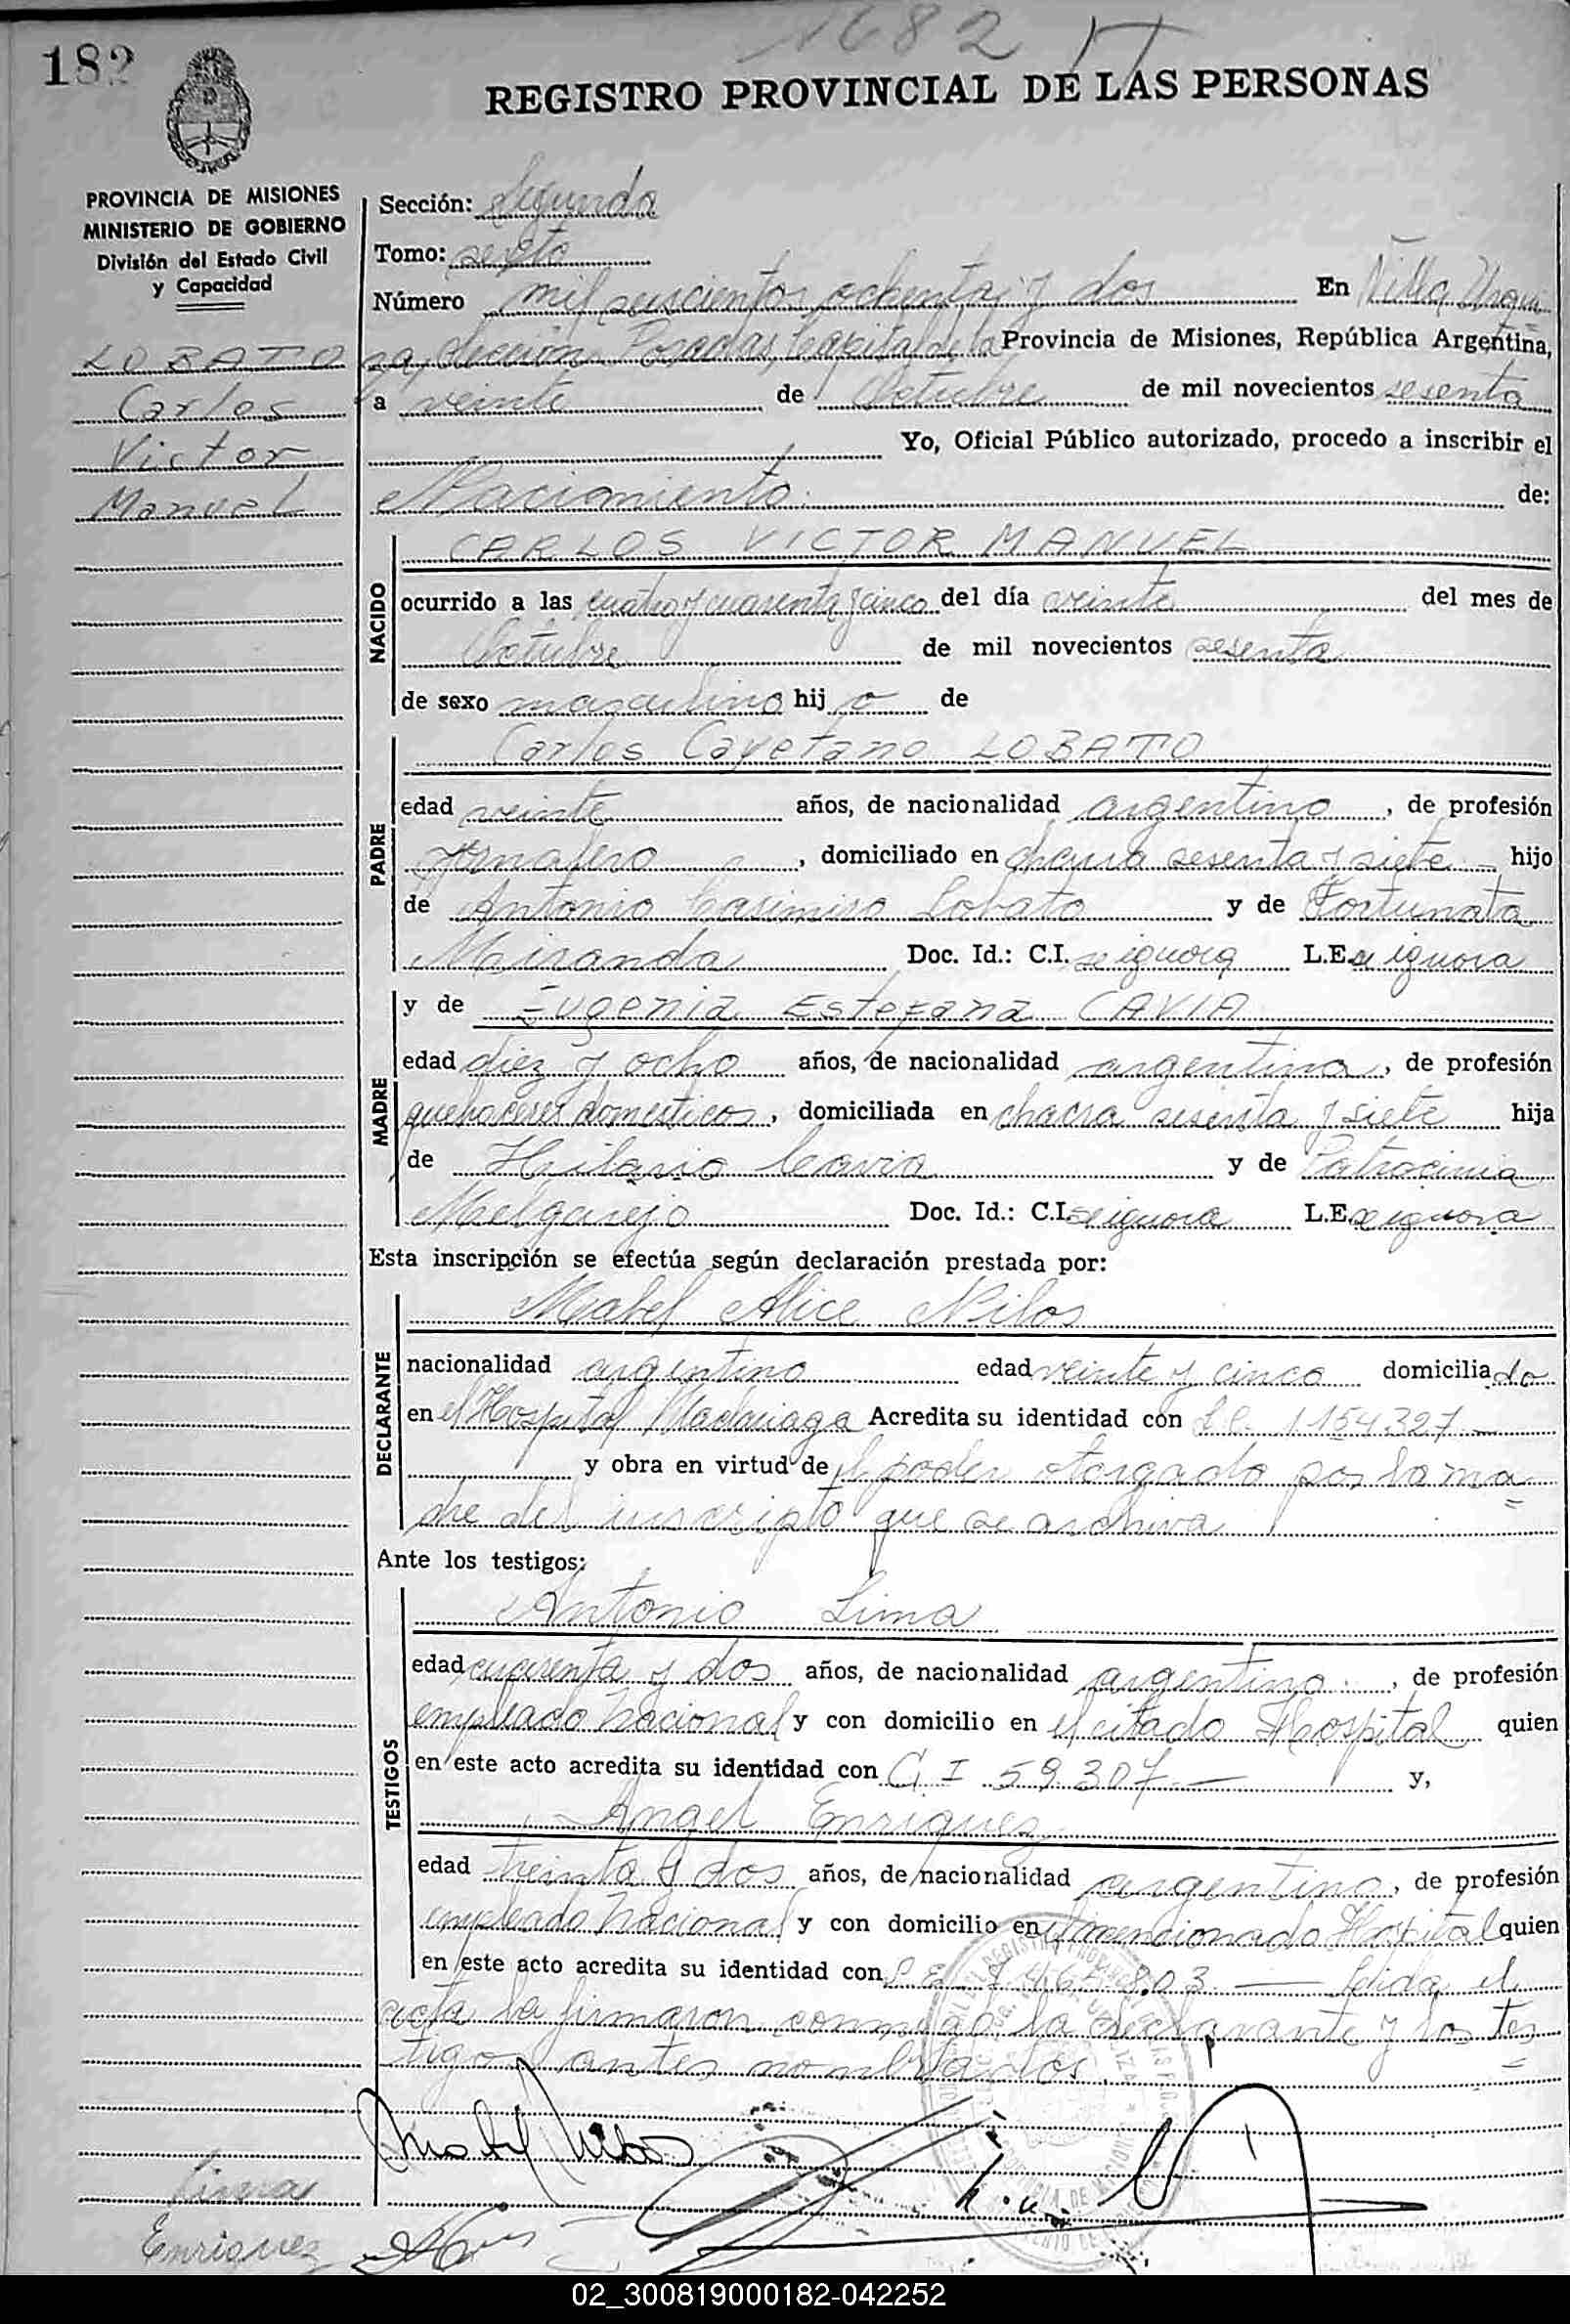 182
1682
REGISTRO PROVINCIAL DE LAS PERSONAS
PROVINCIA DE MISIONES
MINISTERIO DE GOBIERNO
División del Estado Civil
y Capacidad
LOBATO
Carlos
Victor
Manuel
Sección: Segunda
Tomo: sexto
Número mil seiscientos ochenta y dos En Villa Urqui
za, sección Posadas, Capital de la Provincia de Misiones, República Argentina,
a veinte de Octubre de mil novecientos sesenta
Yo, Oficial Público autorizado, procedo a inscribir el
Nacimiento de:
NACIDO
CARLOS VICTOR MANUEL
ocurrido a las cuatro y cuarenta y cinco del día veinte del mes de
Octubre de mil novecientos sesenta
de sexo masculino hij o de
PADRE
Carlos Cayetano LOBATO
edad veinte años, de nacionalidad argentino, de profesión
Jornalero, domiciliado en chacra sesenta y siete hijo
de Antonio Casimiro Lobato y de Fortunata
Miranda Doc. Id.: C.I. se ignora L.E. se ignora
MADRE
y de Eugenia Estefana CAVIA
edad diez y ocho años, de nacionalidad argentina, de profesión
quehaceres domesticos, domiciliada en chacra sesenta y siete hija
de Hilario Cavia y de Patrocinia
Melgarejo Doc. Id.: C.I. se ignora L.E. se ignora
Esta inscripción se efectúa según declaración prestada por:
DECLARANTE
Mabel Alice Nilos
nacionalidad argentino edad veinte y cinco domicilia do
en el Hospital Madariaga Acredita su identidad con L.C. 1.154.327 —
y obra en virtud de el poder otorgado por la ma
dre del inscripto que se archiva
Ante los testigos:
TESTIGOS
Antonio Lima
edad cuarenta y dos años, de nacionalidad argentino, de profesión
empleado Nacional y con domicilio en el citado Hospital quien
en este acto acredita su identidad con C I 59.307 — y,
Angel Enriquez
edad treinta y dos años, de nacionalidad argentino, de profesión
empleado Nacional y con domicilio en el mencionado Hospital quien
en este acto acredita su identidad con L E 7.467.803 — Leida el
acta la firmaron conmigo la declarante y los tes
tigos antes nombrados.
Mabel Nilos
Lima
Enriquez
02_300819000182-042252